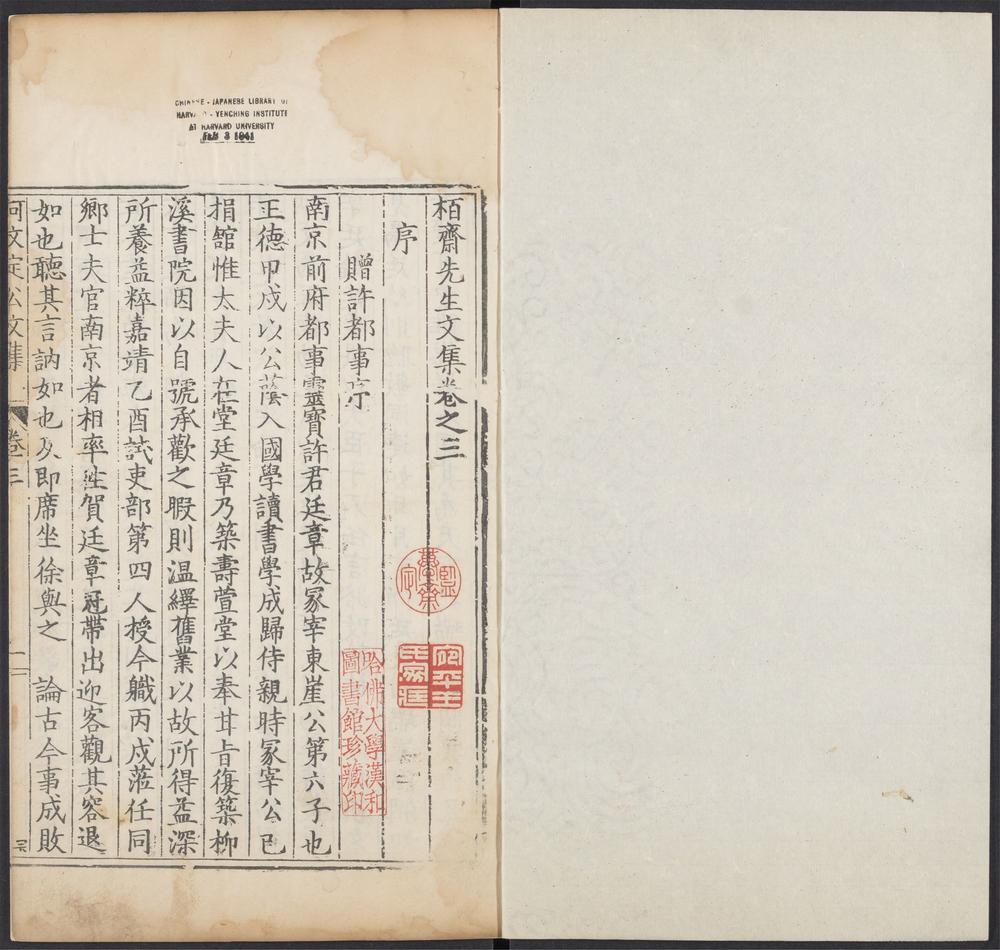 CHINESE - JAPANESE LIBRARY OF
HARVARD - YENCHING INSTITUTE
AT HARVARD UNIVERSITY
FEB 3 1941
栢齋先生文集卷之三
序
贈許都事序
南京前府都事靈寶許君廷章故冢宰東崖公第六子也
正德甲戍以公蔭入國學讀書學成歸侍親時冢宰公已
捐舘惟太夫人在堂廷章乃築壽萱堂以奉甘旨復築柳
溪書院因以自號承歡之暇則温繹舊業以故所得益深
所養益粹嘉靖乙酉試吏部第四人授今職丙戍蒞任同
鄉士夫官南京者相率往賀廷章冠帶出迎客觀其容退
如也聽其言訥如也及即席坐徐與之 論古今事成敗
何文定公文集 卷三 一
哈佛大學漢和
圖書館珍藏印